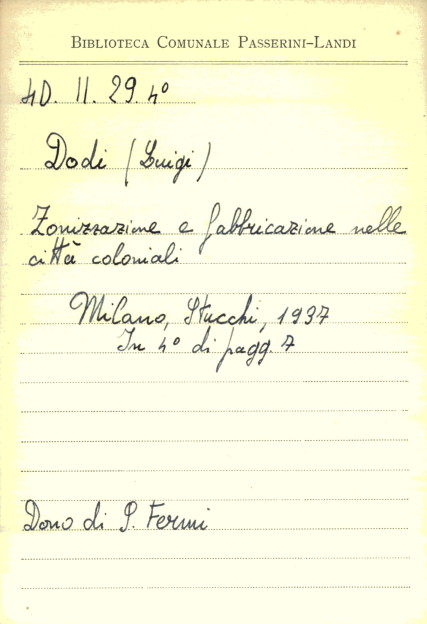 BIBLIOTECA COMUNALE PASSERINI-LANDI
4D. II. 29. 4º
Dodi (Luigi)
Zonizzazione e fabbricazione nelle
città coloniali
Milano, Stucchi, 1937
In 4º di pagg. 7
Dono di P. Fermi